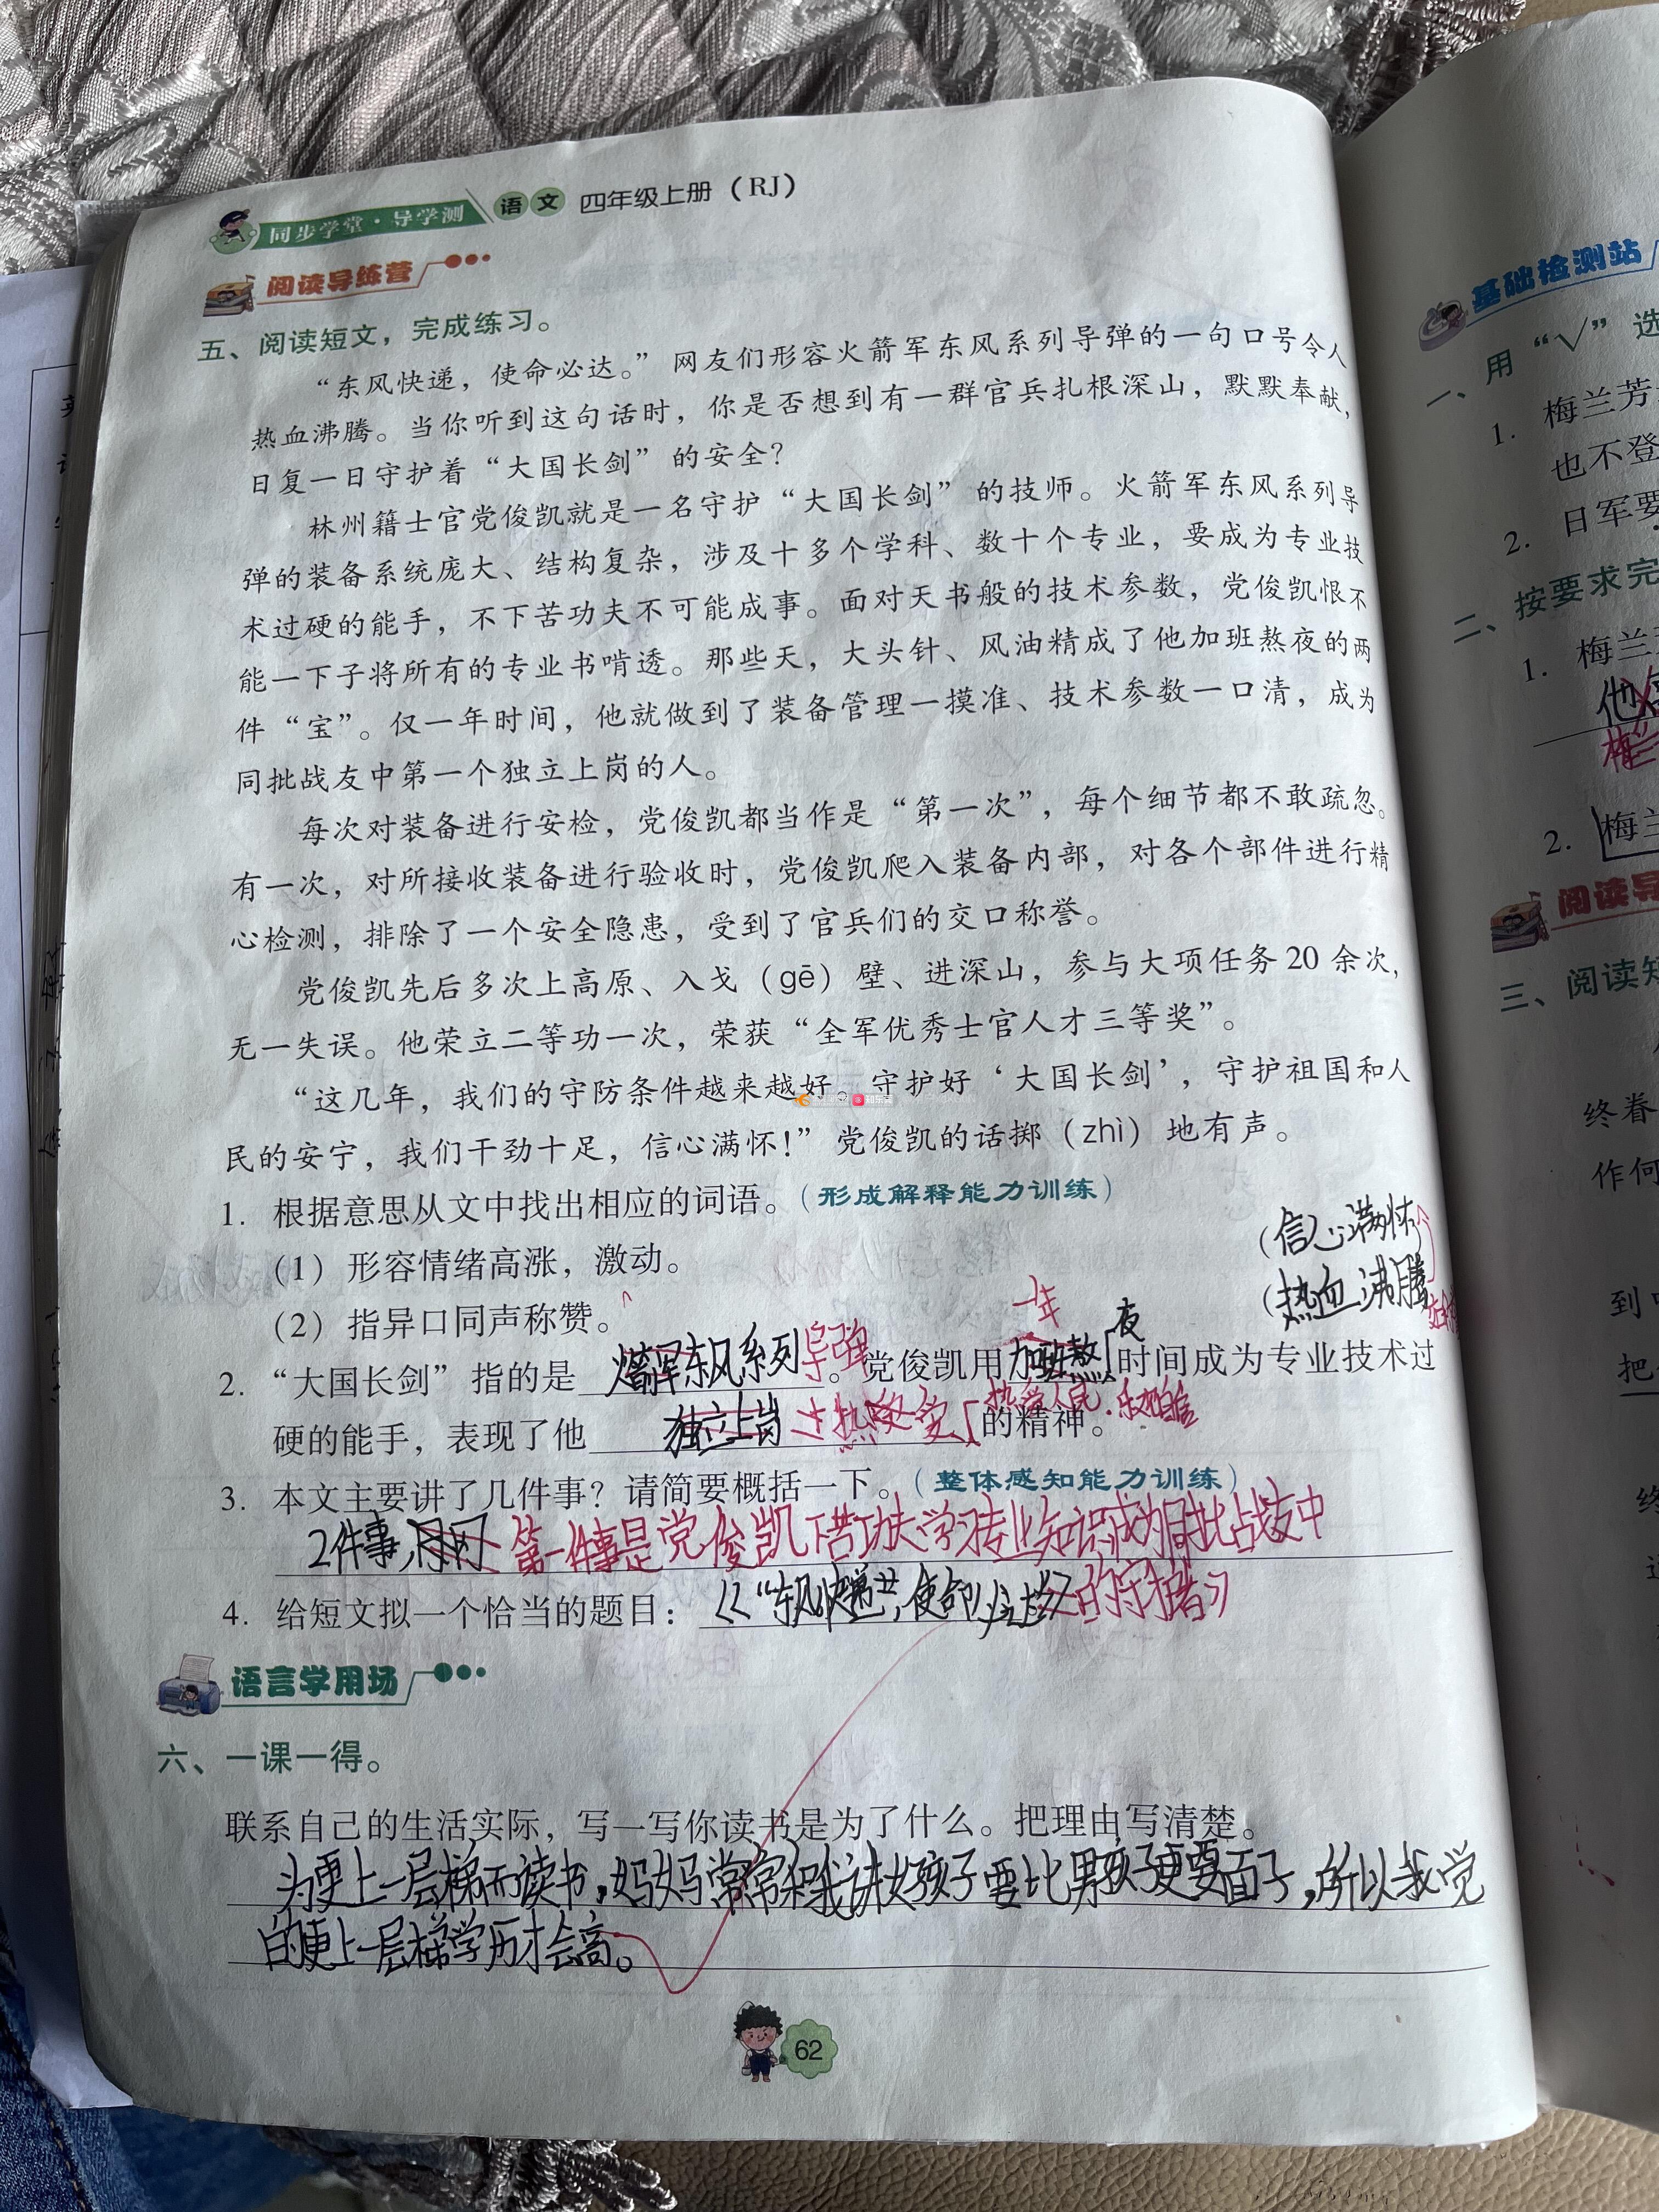 同步学堂·导学测 语文 四年级上册（RJ）
阅读导练营
五、阅读短文，完成练习。
“东风快递，使命必达。”网友们形容火箭军东风系列导弹的一句口号令人
热血沸腾。当你听到这句话时，你是否想到有一群官兵扎根深山，默默奉献，
日复一日守护着“大国长剑”的安全？
林州籍士官党俊凯就是一名守护“大国长剑”的技师。火箭军东风系列导
弹的装备系统庞大、结构复杂，涉及十多个学科、数十个专业，要成为专业技
术过硬的能手，不下苦功夫不可能成事。面对天书般的技术参数，党俊凯恨不
能一下子将所有的专业书啃透。那些天，大头针、风油精成了他加班熬夜的两
件“宝”。仅一年时间，他就做到了装备管理一摸准、技术参数一口清，成为
同批战友中第一个独立上岗的人。
每次对装备进行安检，党俊凯都当作是“第一次”，每个细节都不敢疏忽。
有一次，对所接收装备进行验收时，党俊凯爬入装备内部，对各个部件进行精
心检测，排除了一个安全隐患，受到了官兵们的交口称誉。
党俊凯先后多次上高原、入戈（gē）壁、进深山，参与大项任务20余次，
无一失误。他荣立二等功一次，荣获“全军优秀士官人才三等奖”。
“这几年，我们的守防条件越来越好。守护好‘大国长剑’，守护祖国和人
民的安宁，我们干劲十足，信心满怀！”党俊凯的话掷（zhì）地有声。
1. 根据意思从文中找出相应的词语。（形成解释能力训练）
（1）形容情绪高涨，激动。（信心满怀）
（2）指异口同声称赞。（热血沸腾
一年 夜
2. “大国长剑”指的是 火箭军东风系列导弹。党俊凯用加班熬时间成为专业技术过
硬的能手，表现了他 独立上岗 的精神。
3. 本文主要讲了几件事？请简要概括一下。（整体感知能力训练）
2件事， 第一件事是党俊凯下苦功夫学习专业知识成为同批战友中
4. 给短文拟一个恰当的题目：《“东风快递”，使命必达》的守护者》
语言学用场
六、一课一得。
联系自己的生活实际，写一写你读书是为了什么。把理由写清楚。
为更上一层梯而读书，妈妈常常和我讲女孩子要比男孩子更要面子，所以我觉
的更上一层梯学历才会高。
62
基础检测站
一、用“√”选
1. 梅兰芳
也不登
2. 日军要
二、按要求完
1. 梅兰
他
2. 梅兰
阅读导
三、阅读短
终眷
作何
到
把